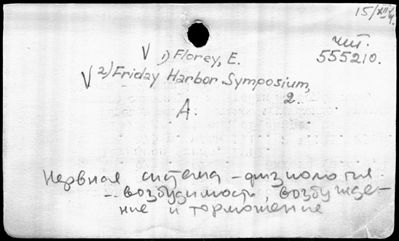 15/XII
шт.
V 1) Florey, E.
555210.
V 2) Friday Harbor Symposium,
2.
A.
Нервная система - физиология.
-- возбудимость, возбужде-
ние и торможение